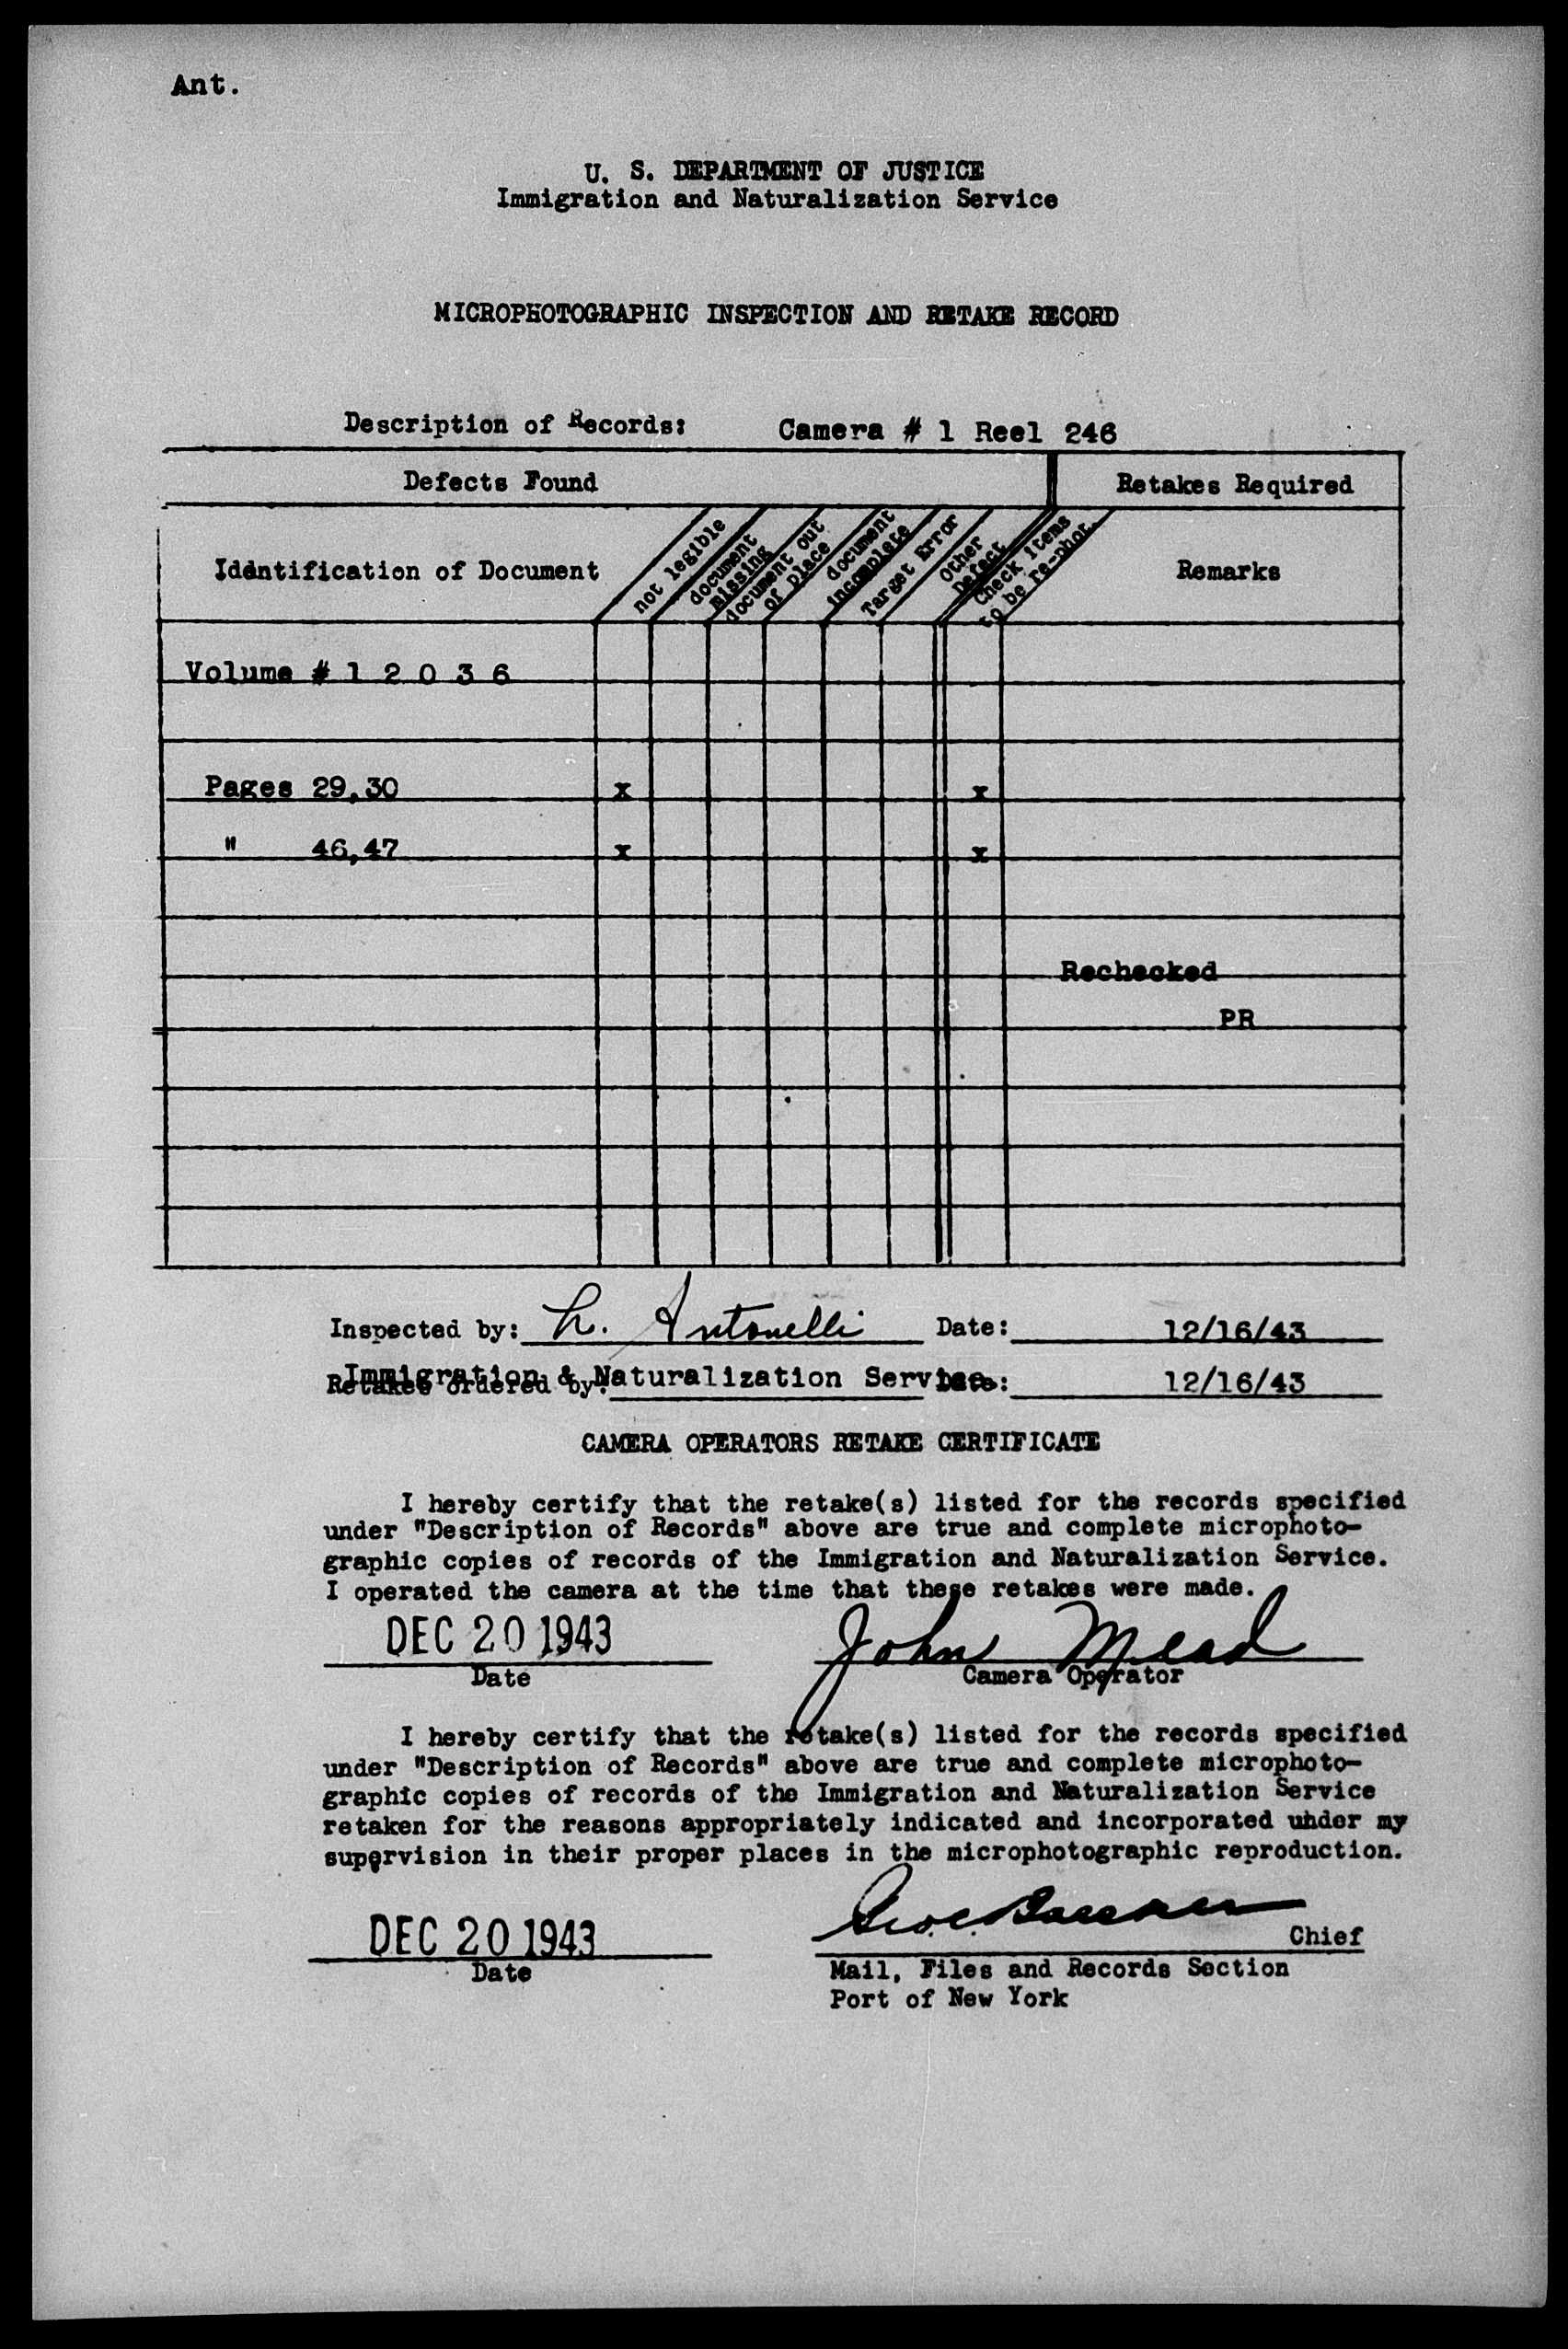 Ant.
U. S. DEPARTMENT OF JUSTICE
Immigration and Naturalization Service
MICROPHOTOGRAPHIC INSPECTION AND RETAKE RECORD
Description of Records: Camera # 1 Reel 246
Defects Found Retakes Required
Identification of Document
not legible
document missing
document out of place
document incomplete
Target Error
Other Defect
Check items to be re-phot.
Remarks
Volume # 1 2 0 3 6
Pages 29,30 x x
" 46,47 x x
Rechecked
PR
Inspected by: L. Antonelli Date: 12/16/43
Immigration & Naturalization Service
Retakes ordered by: Date: 12/16/43
CAMERA OPERATORS RETAKE CERTIFICATE
I hereby certify that the retake(s) listed for the records specified
under "Description of Records" above are true and complete microphoto-
graphic copies of records of the Immigration and Naturalization Service.
I operated the camera at the time that these retakes were made.
DEC 20 1943 John Mead
Date Camera Operator
I hereby certify that the retake(s) listed for the records specified
under "Description of Records" above are true and complete microphoto-
graphic copies of records of the Immigration and Naturalization Service
retaken for the reasons appropriately indicated and incorporated under my
supervision in their proper places in the microphotographic reproduction.
DEC 20 1943 Chief
Date Mail, Files and Records Section
Port of New York